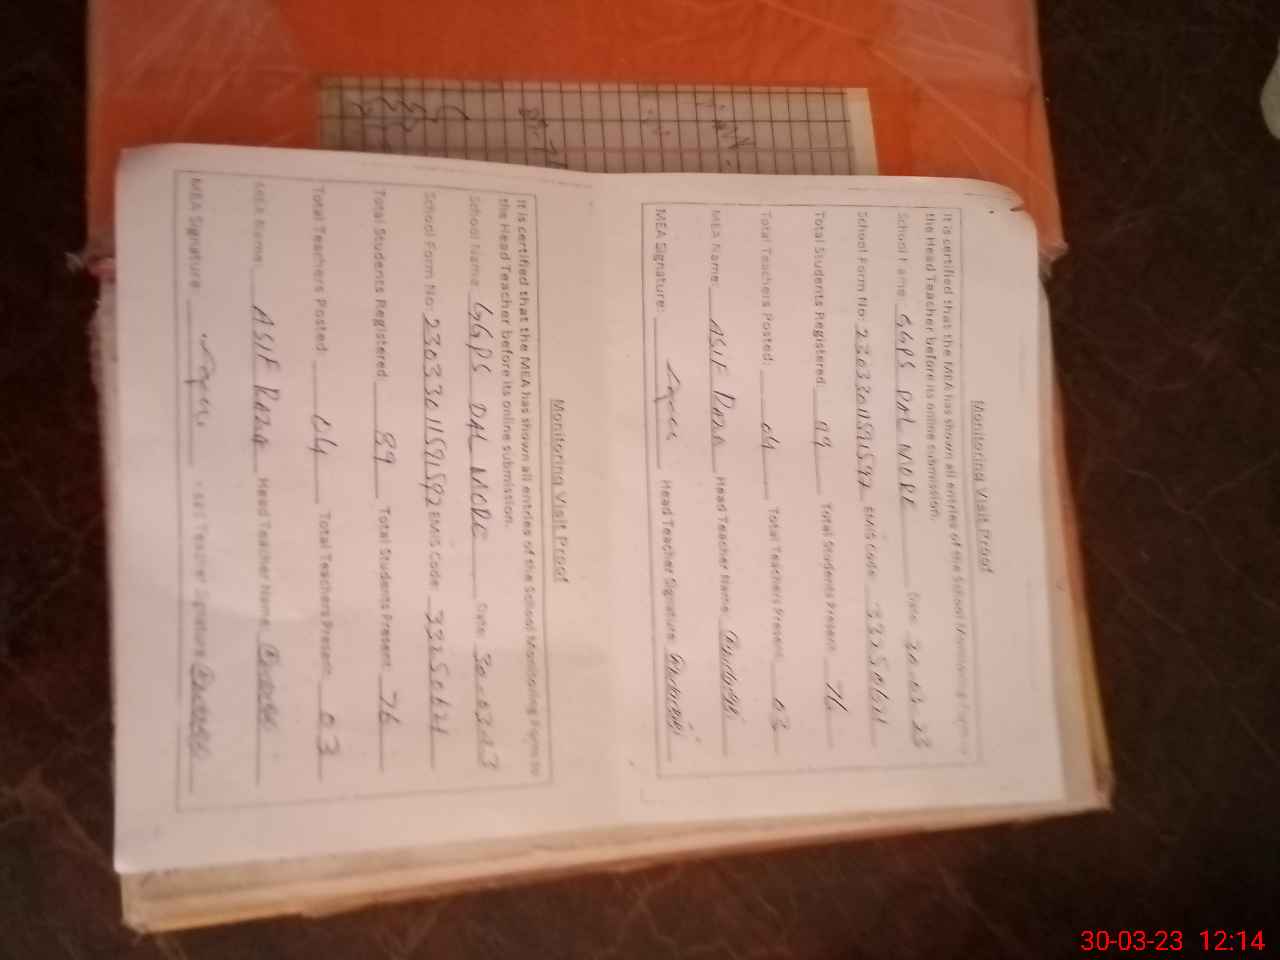 Monitoring Visit Proof
It is certified that the MEA has shown all entries of the School Monitoring Form to
the Head Teacher before its online submission.
School Name: GGPS DAL MORE Date: 30.03.23
School Form No: 23033011591592 EMIS Code:
Total Students Registered: 89 Total Students Present: 76
Total Teachers Posted: 04 Total Teachers Present: 03
MEA Name: ASIF RAZA Head Teacher Name:
MEA Signature: Head Teacher Signature:
Monitoring Visit Proof
It is certified that the MEA has shown all entries of the School Monitoring Form to
the Head Teacher before its online submission.
School Name: GGPS DAL MORE Date: 30.03.23
School Form No: 23033011591592 EMIS Code:
Total Students Registered: 89 Total Students Present: 76
Total Teachers Posted: 04 Total Teachers Present: 03
MEA Name: ASIF RAZA Head Teacher Name:
MEA Signature: Head Teacher Signature:
30-03-23 12:14